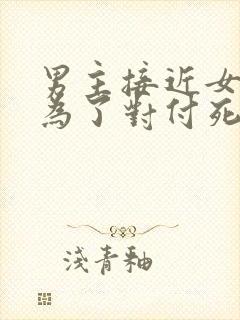 男主接近女
為了對付死
淺青釉